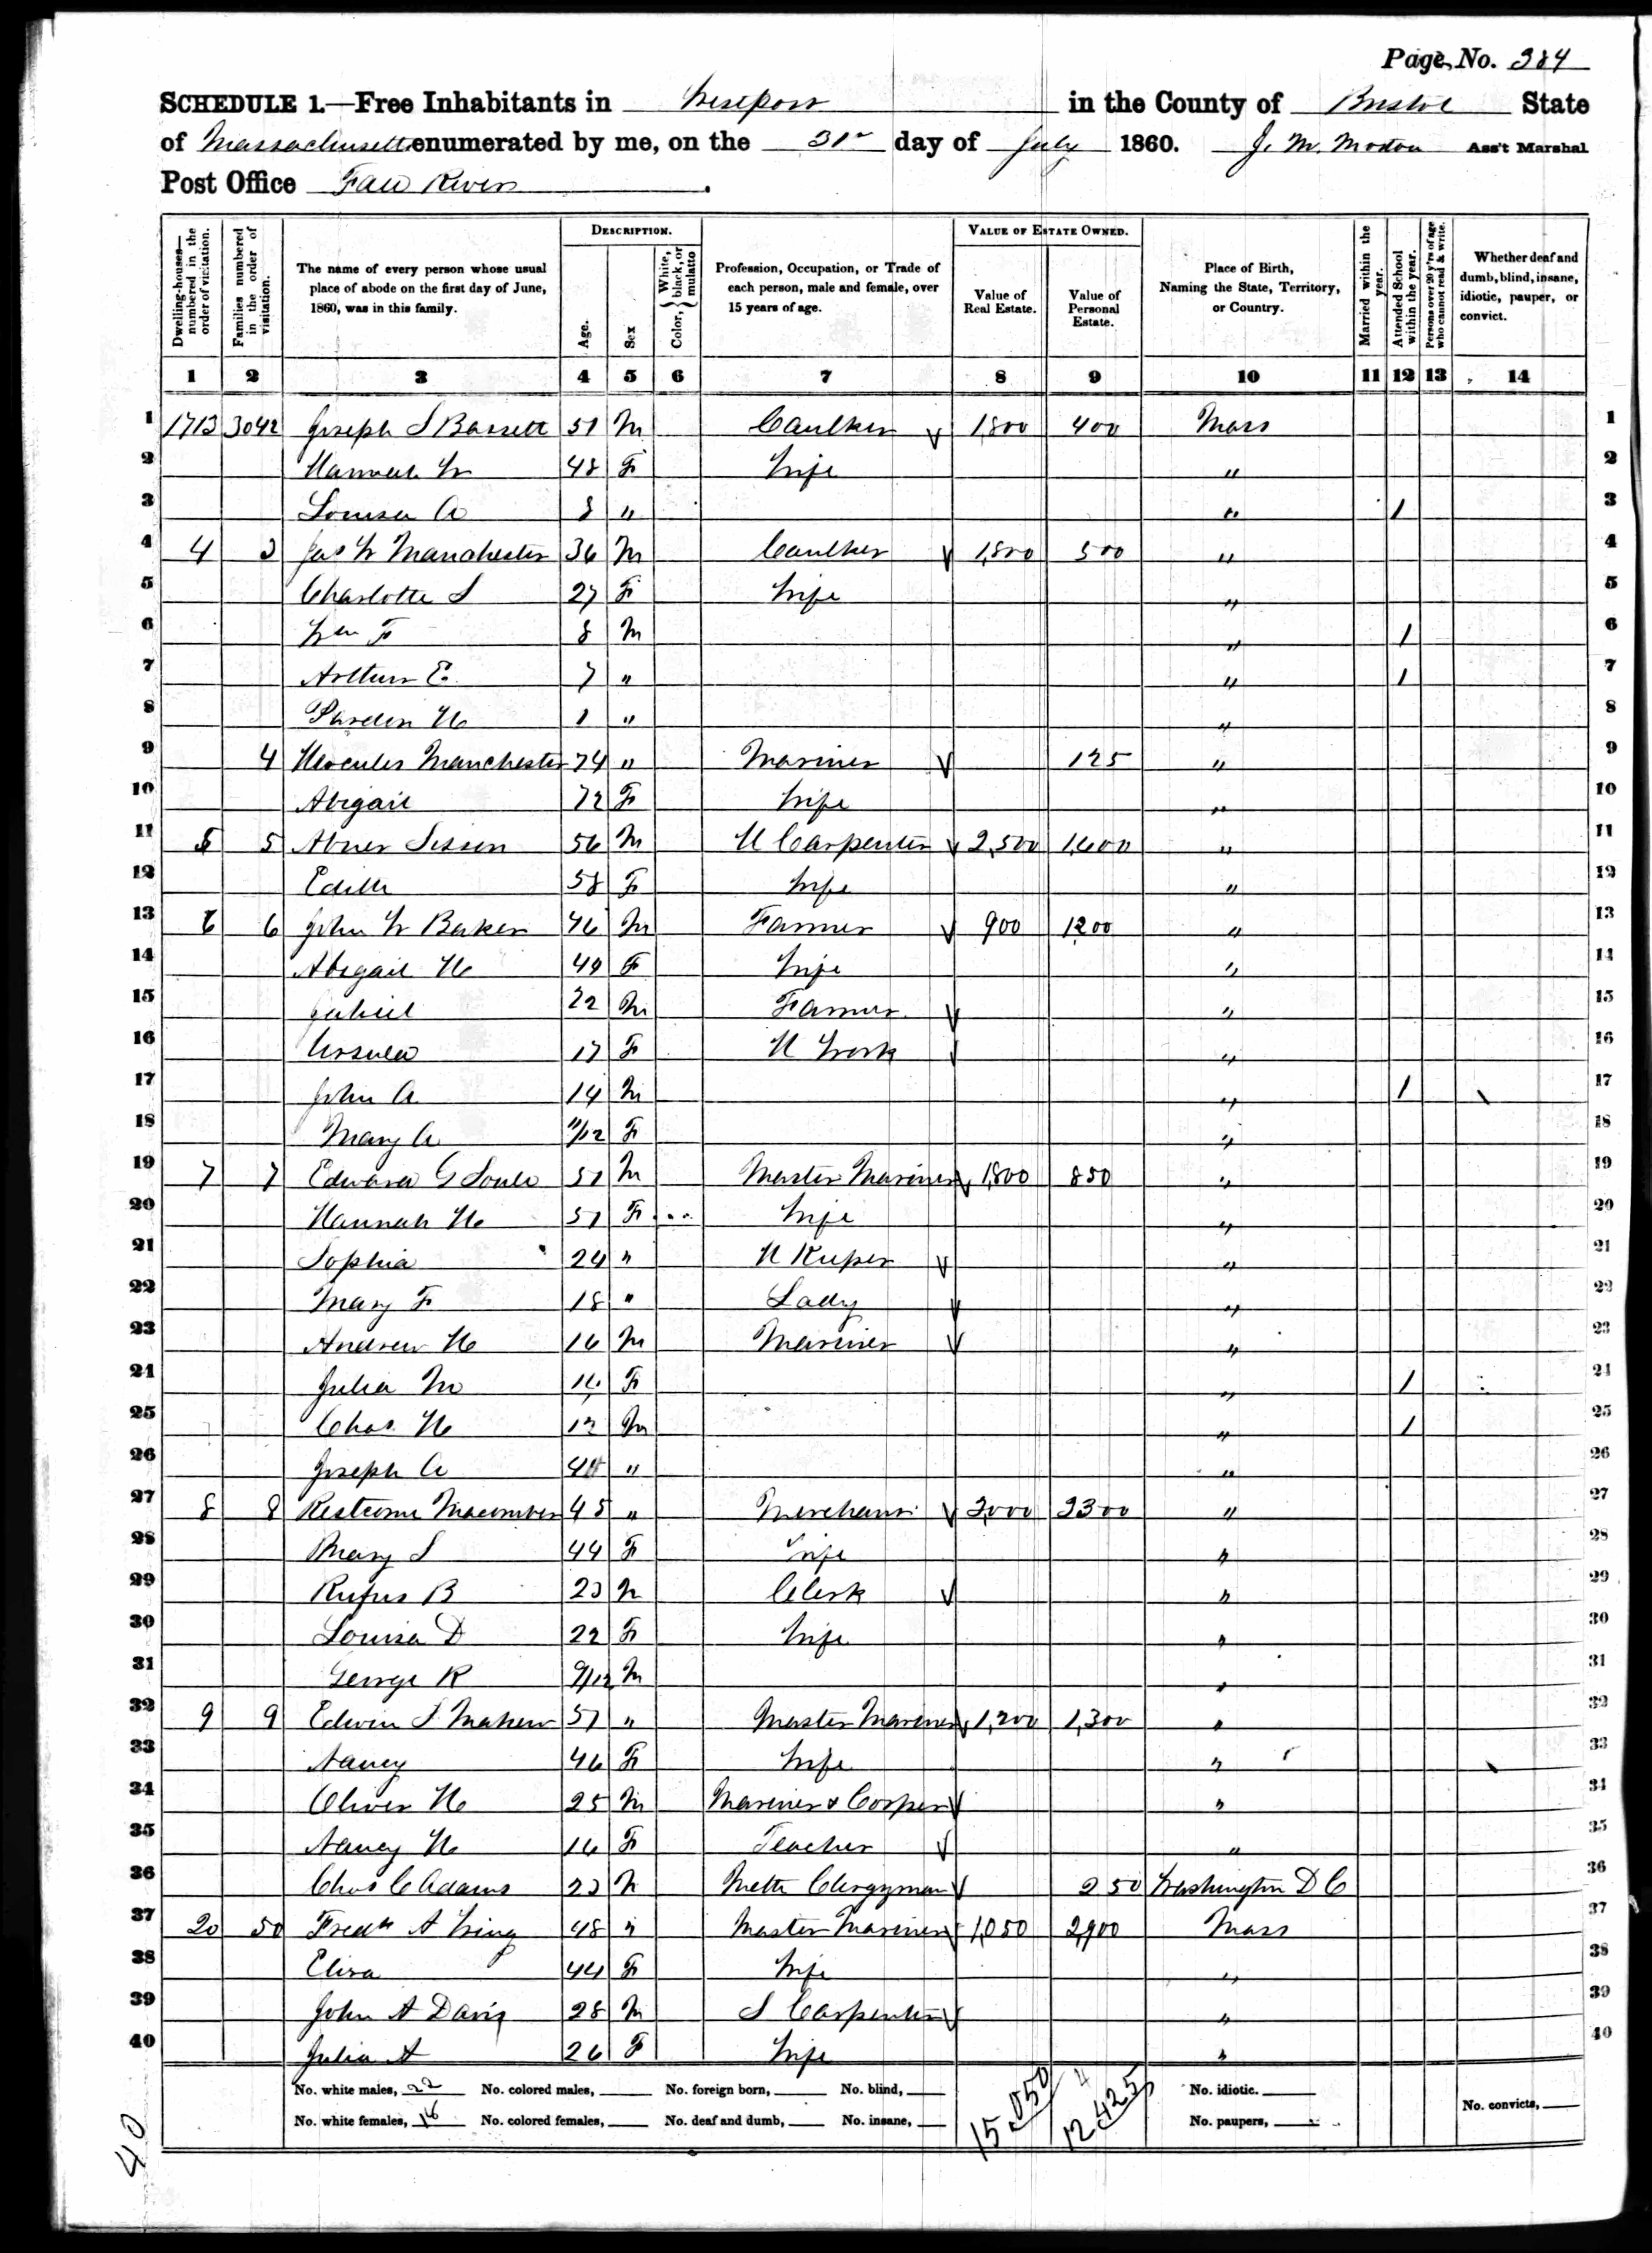 Page No. 384
SCHEDULE 1.—Free Inhabitants in Westport in the County of Bristol State
of Massachusetts enumerated by me, on the 31st day of July 1860. J. M. Morton Ass't Marshal
Post Office Fall River.
Dwelling-houses—numbered in the order of visitation.
Families numbered in the order of visitation.
The name of every person whose usual place of abode on the first day of June, 1860, was in this family.
DESCRIPTION.
Age.
Sex
Color, White, black, or mulatto
Profession, Occupation, or Trade of each person, male and female, over 15 years of age.
VALUE OF ESTATE OWNED.
Value of Real Estate.
Value of Personal Estate.
Place of Birth, Naming the State, Territory, or Country.
Married within the year.
Attended School within the year.
Persons over 20 y'rs of age who cannot read & write.
Whether deaf and dumb, blind, insane, idiotic, pauper, or convict.
1 2 3 4 5 6 7 8 9 10 11 12 13 14
1 1713 3042 Joseph S Bassett 51 M Caulker 1,800 400 Mass 1
2 Hannah W 48 F Wife " 2
3 Louisa A 8 " " 1 3
4 4 3 Jas W Manchester 36 M Caulker 1,800 500 " 4
5 Charlotte S 27 F Wife " 5
6 Wm F 8 M " 1 6
7 Arthur E. 7 " " 1 7
8 Pardon H 1 " " 8
9 4 Hercules Manchester 74 " Mariner 125 " 9
10 Abigail 72 F Wife " 10
11 5 5 Abner Sisson 56 M H Carpenter 2,500 1,600 " 11
12 Edith 58 F Wife " 12
13 6 6 John W Baker 46 M Farmer 900 1200 " 13
14 Abigail H 49 F Wife " 14
15 22 M Farmer " 15
16 Ursula 17 F H Work " 16
17 John A 14 M " 1 17
18 Mary A 11/12 F " 18
19 7 7 Edward G Soule 51 M Master Mariner 1,800 850 " 19
20 Hannah H 51 F Wife " 20
21 Sophia 24 " H Keeper " 21
22 Mary F 18 " Lady " 22
23 Andrew H 16 M Mariner " 23
24 Julia M 14 F " 1 24
25 Chas. H 12 M " 1 25
26 Joseph A 4 " " 26
27 8 8 Restcome Macomber 45 " Merchant 2,000 2300 " 27
28 Mary S 44 F Wife " 28
29 Rufus B 23 M Clerk " 29
30 Louisa D 22 F Wife " 30
31 George R 9/12 M " 31
32 9 9 Edwin S 51 " Master Mariner 1,200 1,300 " 32
33 Nancy 46 F Wife " 33
34 Oliver H 25 M Mariner & Cooper " 34
35 Nancy H 16 F Teacher " 35
36 Chas C Adams 23 M Meth Clergyman 250 Washington D C 36
37 20 50 Fredk A Wing 48 " Master Mariner 1,050 2,900 Mass 37
38 Eliza 44 F Wife " 38
39 John A Davis 28 M S Carpenter " 39
40 Julia A 26 F Wife " 40
No. white males, 22 No. colored males, No. foreign born, No. blind, 15,050 12,425 No. idiotic.
No. white females, 18 No. colored females, No. deaf and dumb, No. insane, No. paupers, No. convicts,
40